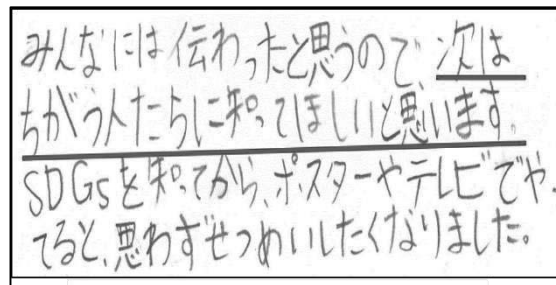 みんなには伝わったと思うので、次は
ちがう人たちに知ってほしいと思います。
SDGsを知ってから、ポスターやテレビでや
てると、思わずせつめいしたくなりました。